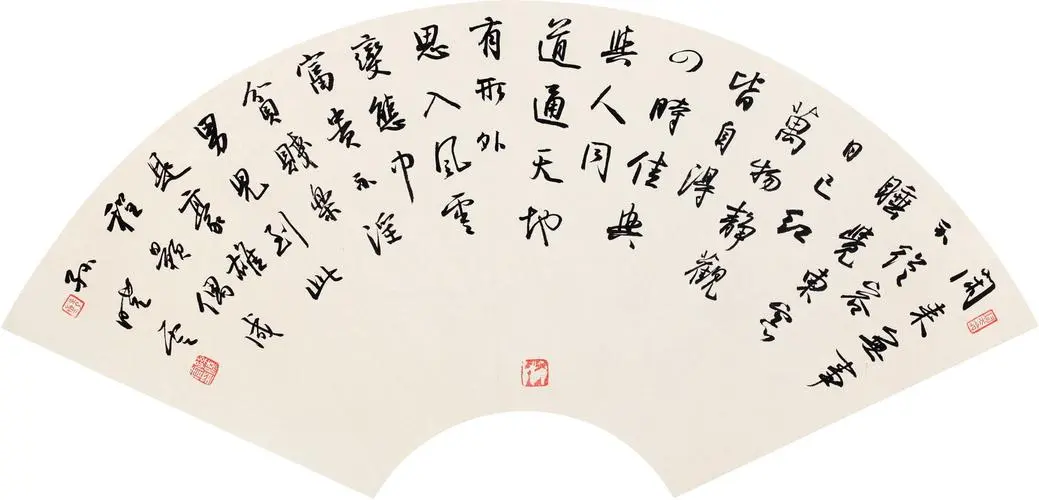 閑來無事
不從容
睡覺東窗
日已紅
萬物靜觀
皆自得
四時佳興
與人同
道通天地
有形外
思入風雲
變態中
富貴不淫
貧賤樂
男兒到此
是豪雄
程顥偶成
孫曉雲